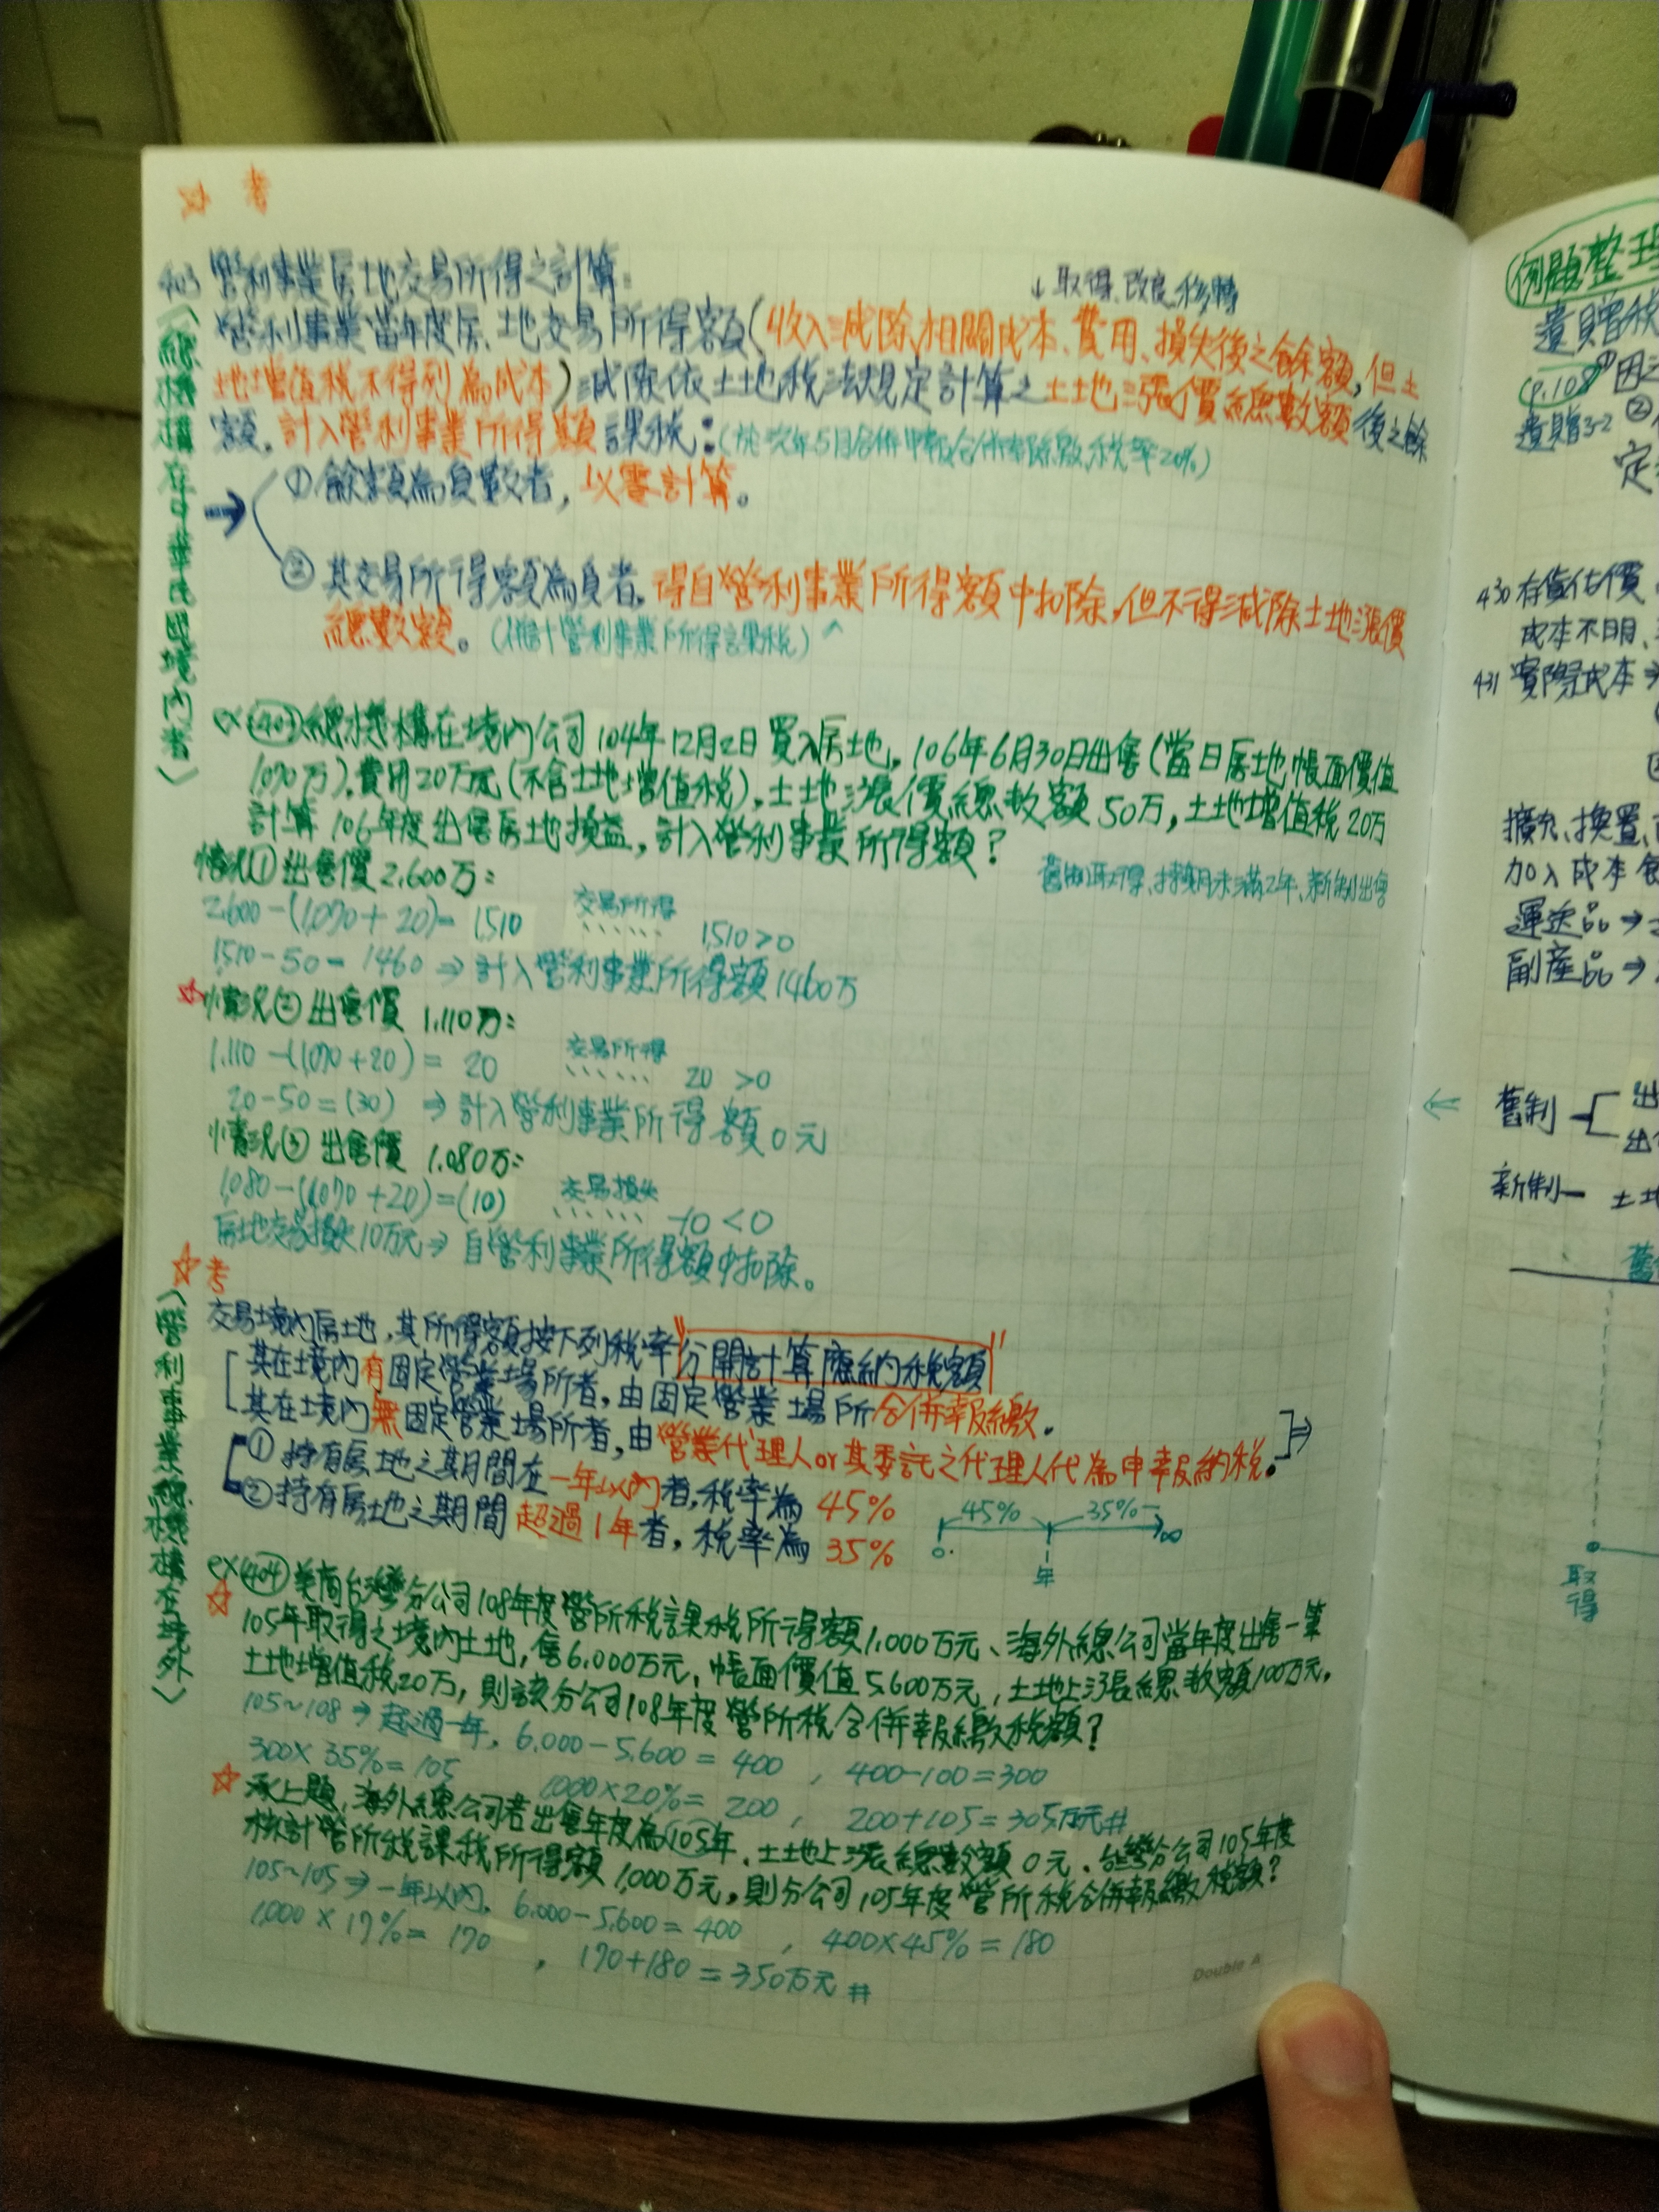 考
403 營利事業房地交易所得之計算：
↓取得、改良、移轉
營利事業當年度房、土地交易所得額(收入減除相關成本、費用、損失後之餘額,但土
地增值稅不得列為成本)減除依土地稅法規定計算之土地漲價總數額後之餘
額,計入營利事業所得額課稅：(於次年5月合併申報合併率際繳,稅率20%)
① 餘額為負數者,以零計算。
② 其交易所得額為負者,得自營利事業所得額中扣除,但不得減除土地漲價
總數額。(併計營利事業所得課稅)
〈總機構在中華民國境內者〉
ex(403)總機構在境內公司104年12月2日買入房地,106年6月30日出售(當日房地帳面價值
1,070萬),費用20萬元(不含土地增值稅),土地漲價總數額50萬,土地增值稅20萬
計算106年度出售房地損益,計入營利事業所得額?
舊制取得、持期未滿2年、新制出售
情況① 出售價2,600萬：
2,600-(1,070+20)= 1,510 交易所得 1,510>0
1,510-50=1460 ⇒ 計入營利事業所得額1460萬
☆情況② 出售價 1,110萬：
1,110-(1,070+20)= 20 交易所得 20 >0
20-50=(30) ⇒ 計入營利事業所得額0元
情況③ 出售價 1,080萬：
1,080-(1,070+20)=(10) 交易損失 -10<0
房地交易損失10萬元⇒ 自營利事業所得額中扣除。
☆考
〈營利事業總機構在境外〉
交易境內房地,其所得額按下列稅率"分開計算應納稅額"
其在境內有固定營業場所者,由固定營業場所合併報繳。
其在境內無固定營業場所者,由營業代理人or其委託之代理人代為申報納稅。
① 持有房地之期間在一年以內者,稅率為 45%
② 持有房地之期間超過1年者,稅率為 35%
45% 35%
0 年 ∞
ex(404)美商台灣分公司108年度營所稅課稅所得額1,000萬元、海外總公司當年度出售一筆
☆105年取得之境內土地,售6,000萬元,帳面價值5,600萬元,土地上漲總數額100萬元,
土地增值稅20萬,則該分公司108年度營所稅合併報繳稅額?
105~108⇒超過一年, 6,000-5,600=400 , 400-100=300
300×35%=105 1000×20%=200 , 200+105=305萬元#
☆承上題,海外總公司若出售年度為105年、土地上漲總數額0元、台灣分公司105年度
核計營所稅課稅所得額1,000萬元,則分公司105年度營所稅合併報繳稅額?
105~105⇒一年以內, 6,000-5,600=400 , 400×45%=180
1,000×17%= 170 , 170+180=350萬元#
Double A
例題整理
遺贈稅
(p.108)
遺贈3-2 ②
定
430 存貨估價
成本不明、
431 實際成本
擴充、換置、
加入成本
運送品→
副產品⇒
← 舊制
出
出
新制 土地
舊
取得